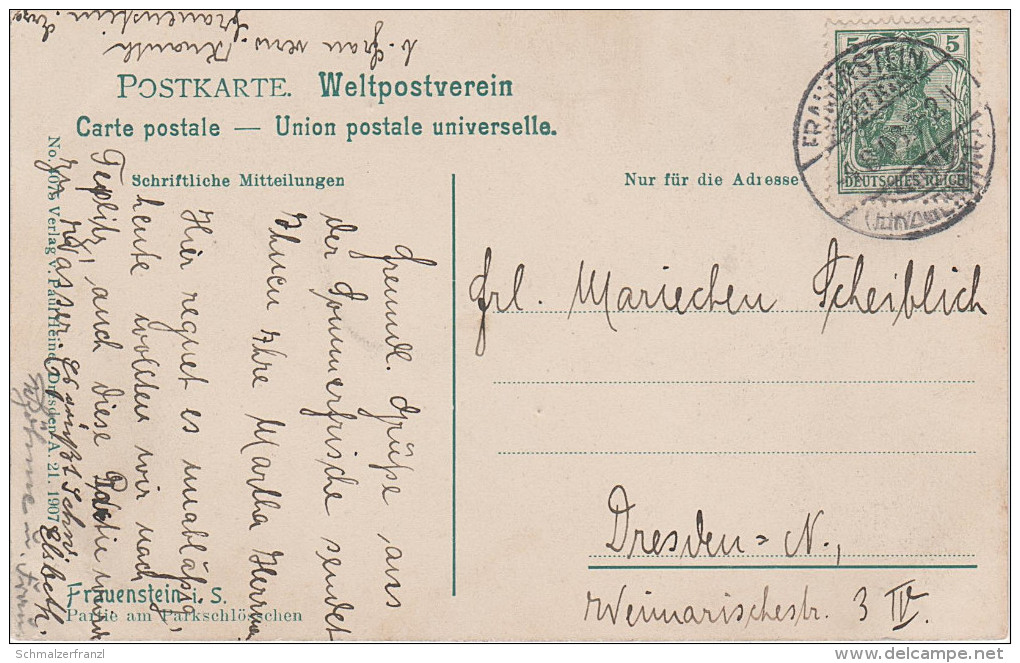 POSTKARTE. Weltpostverein
Carte postale — Union postale universelle.
Schriftliche Mitteilungen
Nur für die Adresse
5 5
DEUTSCHES REICH
FRAUENSTEIN
Frl. Mariechen Scheiblich
Dresden=N.,
Weimarischestr. 3 IV.
Freundl. Grüße aus
der Sommerfrische sendet
Ihnen Ihre Martha
Hier regnet es unabläßig,
heute wollten wir nach
Teplitz, auch diese Partie
zu Wasser. Es grüßt
Elsbeth.
b. Frau verw.
Frauenstein.
No. 4075 Verlag v. Paul Heine, Dresden-A. 21. 1907
Frauenstein i. S.
Partie am Parkschlösschen
Schmalzerfranzl
delcampe.net